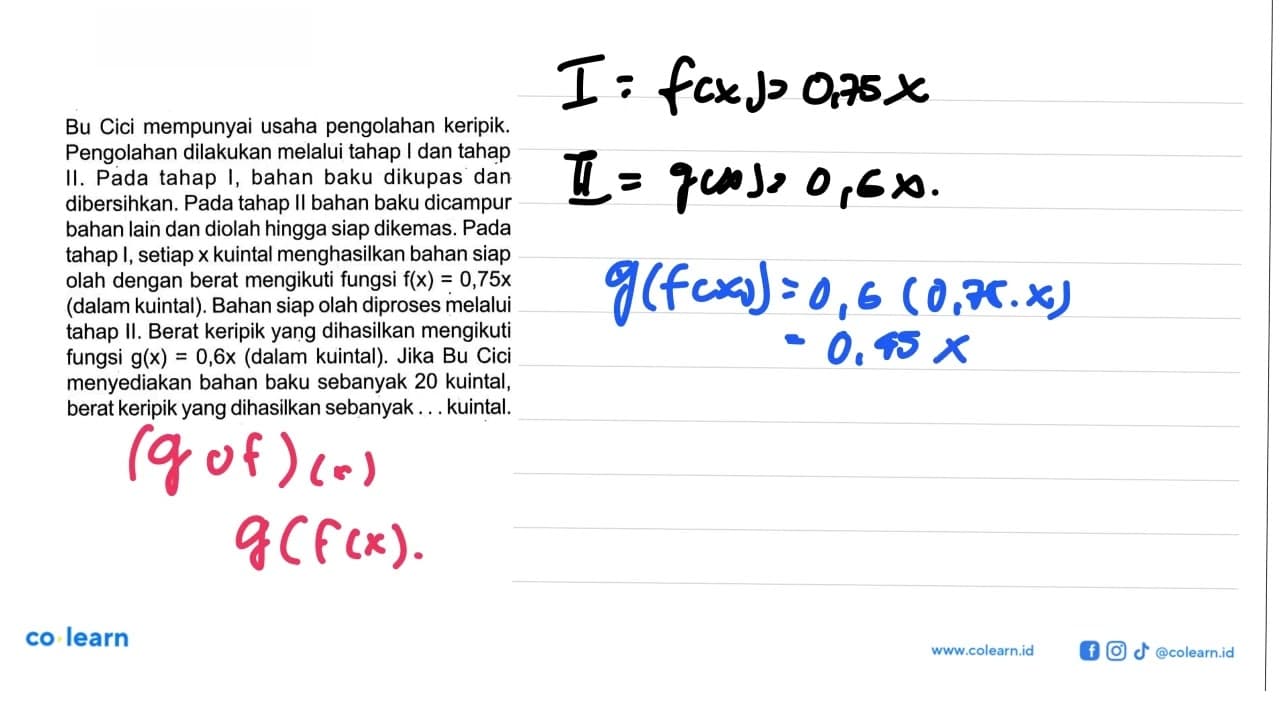 Bu Cici mempunyai usaha pengolahan keripik.
Pengolahan dilakukan melalui tahap I dan tahap
II. Pada tahap I, bahan baku dikupas dan
dibersihkan. Pada tahap II bahan baku dicampur
bahan lain dan diolah hingga siap dikemas. Pada
tahap I, setiap x kuintal menghasilkan bahan siap
olah dengan berat mengikuti fungsi f(x) = 0,75x
(dalam kuintal). Bahan siap olah diproses melalui
tahap II. Berat keripik yang dihasilkan mengikuti
fungsi g(x) = 0,6x (dalam kuintal). Jika Bu Cici
menyediakan bahan baku sebanyak 20 kuintal,
berat keripik yang dihasilkan sebanyak . . . kuintal.
(g o f) (x)
g(f(x).
I = f(x) = 0,75 x
II = g(x) = 0,6x.
g(f(x)) = 0,6 (0,75.x)
= 0,45 x
co learn
www.colearn.id
@colearn.id